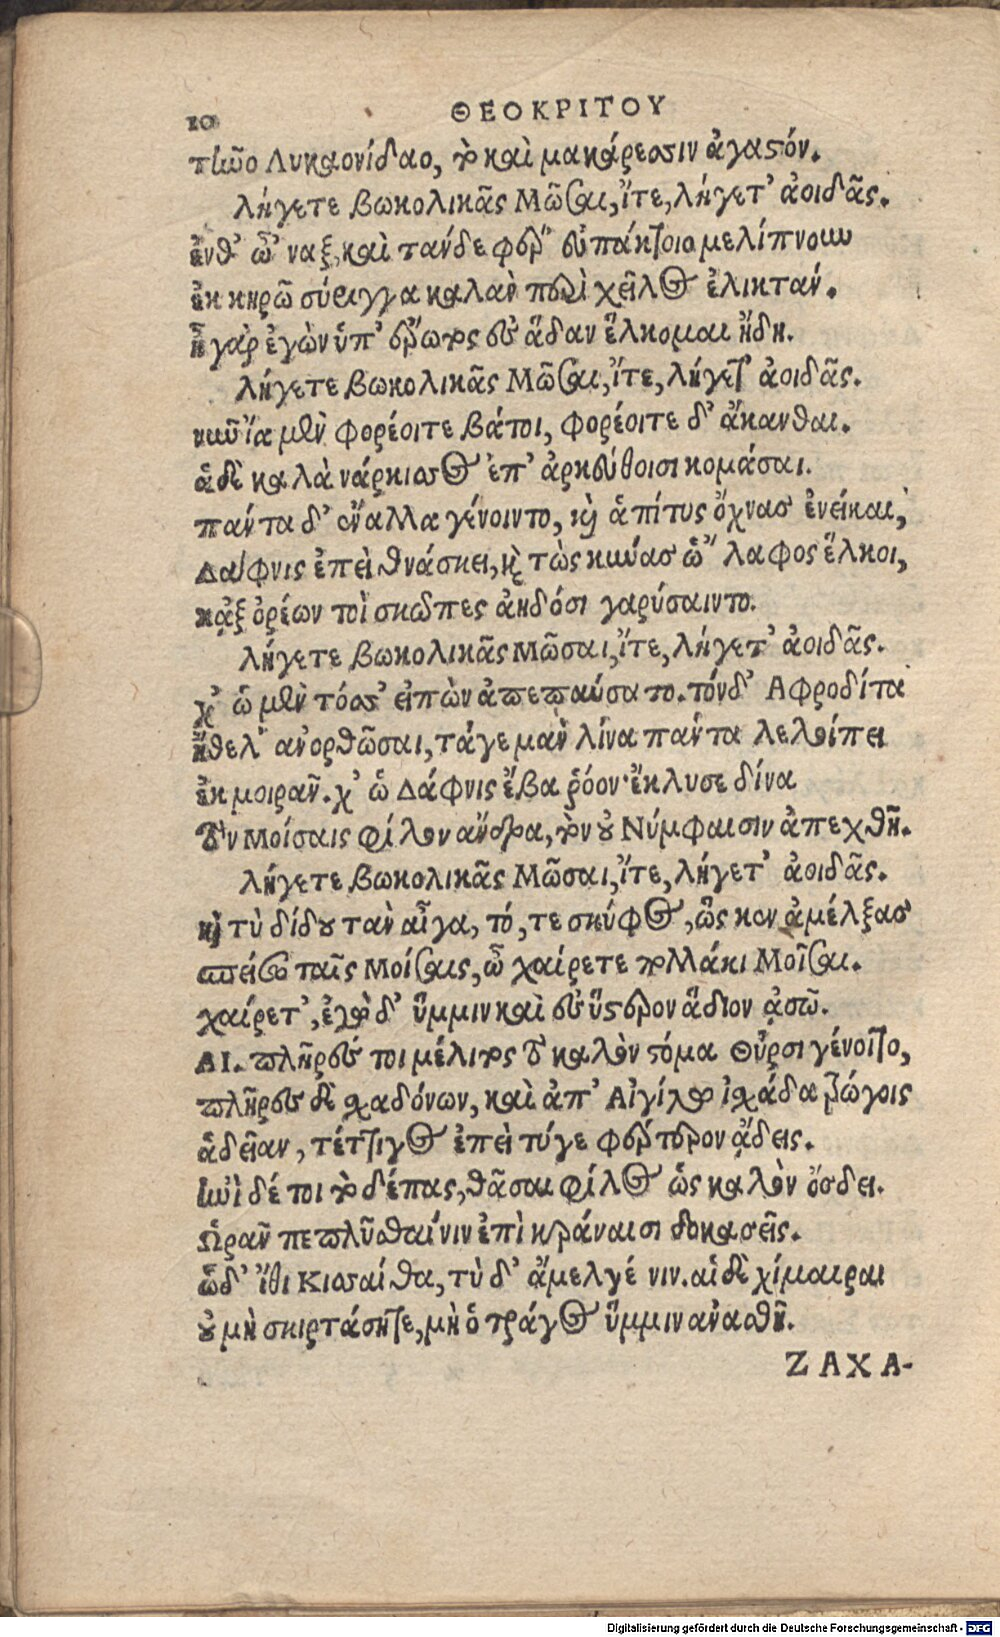 10 ΘΕΟΚΡΙΤΟΥ
τῆνο Λυκαονίδαο, τὸ καὶ μακάρεσσιν ἀγαστόν.
Λήγετε βωκολικᾶς Μῶσαι, ἴτε, λήγετ' ἀοιδᾶς.
ἔνθ' ὦ' ναξ, καὶ τάνδε φέρ' εὐπάκτοιο μελίπνουν
ἐκ κηρῶ σύριγγα καλὰν περὶ χεῖλος ἑλικτάν.
ἦ γὰρ ἐγὼν ὑπ' ἔρωτος ἐς ἅδαν ἕλκομαι ἤδη.
Λήγετε βωκολικᾶς Μῶσαι, ἴτε, λήγετ' ἀοιδᾶς.
νῦν ἴα μὲν φορέοιτε βάτοι, φορέοιτε δ' ἄκανθαι.
ἁ δὲ καλὰ νάρκισσος ἐπ' ἀρκεύθοισι κομάσαι.
πάντα δ' ἔναλλα γένοιντο, καὶ ἁ πίτυς ὄχνας ἐνείκαι,
Δάφνις ἐπεὶ θνάσκει, καὶ τὼς κύνας ὡ' λαφος ἕλκοι,
κᾀξ ὀρέων τοὶ σκῶπες ἀηδόσι γαρύσαιντο.
Λήγετε βωκολικᾶς Μῶσαι, ἴτε, λήγετ' ἀοιδᾶς.
χ' ὡ μὲν τόσσ' εἰπὼν ἀπεπαύσατο. τόνδ' Αφροδίτα
ἤθελ' ἀνορθῶσαι, τάγε μὰν λίνα πάντα λελοίπει
ἐκ μοιρᾶν. χ' ὡ Δάφνις ἔβα ῥόον· ἔκλυσε δίνα
τὸν Μοίσαις φίλον ἄνδρα, τὸν οὐ Νύμφαισιν ἀπεχθῆ.
Λήγετε βωκολικᾶς Μῶσαι, ἴτε, λήγετ' ἀοιδᾶς.
καὶ τὺ δίδου τὰν αἶγα, τό, τε σκύφος, ὥς κεν ἀμέλξας
σπείσω ταῖς Μοίσαις, ὦ χαίρετε πολλάκι Μοῖσαι.
χαίρετ', ἐγὼ δ' ὔμμιν καὶ ἐς ὕστερον ἅδιον ᾀσῶ.
ΑΙ. πλῆρές τοι μέλιτος τὸ καλὸν στόμα Θύρσι γένοιτο,
πλῆρες δὲ σχαδόνων, καὶ ἀπ' Αἰγίλω ἰσχάδα τρώγοις
ἁδεῖαν, τέττιγος ἐπεὶ τύγε φέρτερον ᾄδεις.
ἠνὶ δέ τοι τὸ δέπας, θᾶσαι φίλος ὡς καλὸν ὄσδει.
Ωρᾶν πεπλῦσθαί νιν ἐπὶ κράναισι δοκασεῖς.
ὧδ' ἴθι Κισσαίθα, τὺ δ' ἄμελγέ νιν. αἱ δὲ χίμαιραι
οὐ μὴ σκιρτάσητε, μὴ ὁ τράγος ὔμμιν ἀναστῇ.
ΖΑΧΑ-
Digitalisierung gefördert durch die Deutsche Forschungsgemeinschaft - DFG